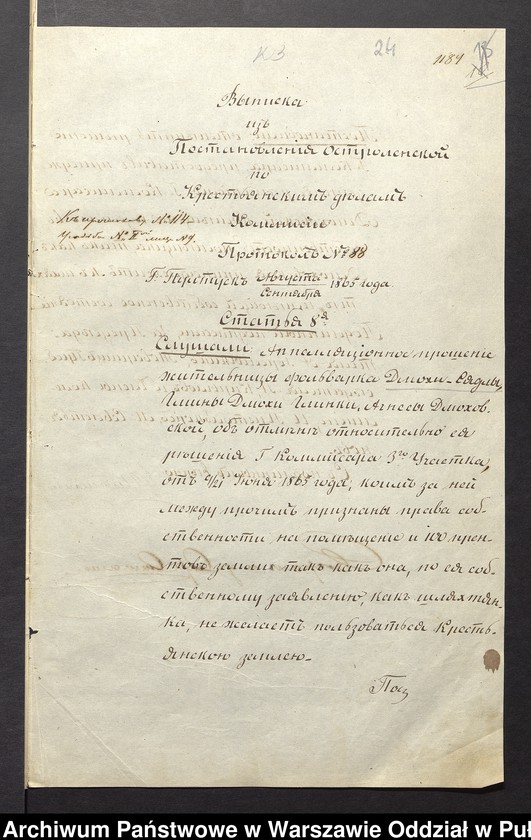 К3
24
1184
Выписка
изъ
Постановленія Остроленской
по
Крестьянскимъ дѣламъ
Комисіи
Къ прошенію № 114.
Протоколъ № 88
Г. Пултускъ Августъ/Сентября 1865 года.
Статья 8я
Слушали Аппелляціонное прошеніе
жительницы фольварка Дмохи-Вядлы,
Глины Дмохи Глинки, Агнесы Дмохов-
ской, объ отмѣнѣ относительно ея
рѣшенія Г Коммисара 3го Участка,
отъ 9/21 Іюня 1865 года, коимъ за ней
между прочимъ признаны права соб-
ственности на помѣщеніе и 100 прен-
товъ земли, такъ какъ она, по ея соб-
ственному заявленію, какъ шляхтян-
ка, не желаетъ пользоваться Кресть-
янскою землею.
Archiwum Państwowe w Warszawie Oddział w Puł